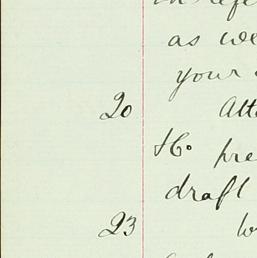 as we
your
20 Atte
Ho pre
draft
23 W